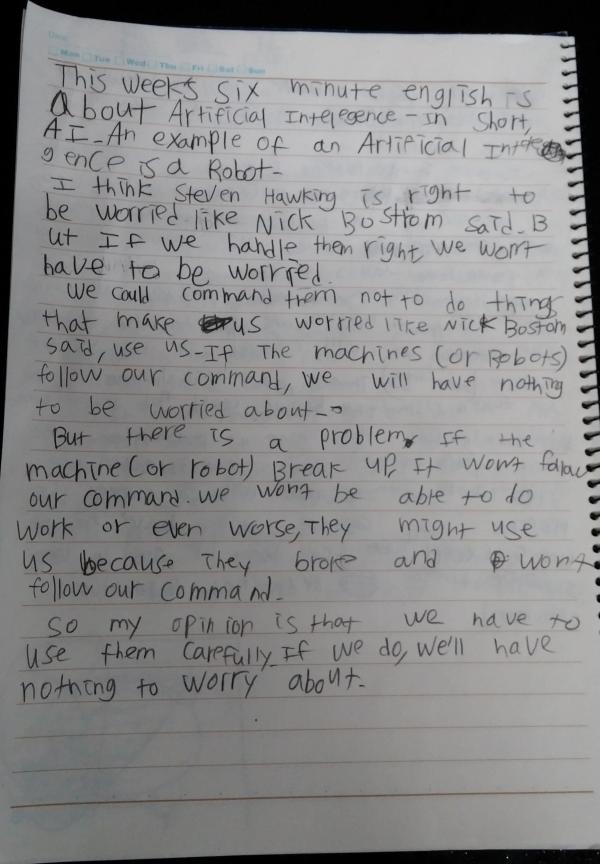 Date
Mon Tue Wed Thu Fri Sat Sun
This weeks six minute english is
About Artificial Intelegence - in short,
AI - An example of an Artificial Intele
gence is a Robot -
I think Steven Hawking is right to
be worried like Nick Bostrom said. B
ut If we handle them right, we won't
have to be worried.
We could command them not to do things
that make us worried like Nick Bostom
said, use us - If The machines (or Robots)
follow our command, we will have nothing
to be worried about -
But there is a problem, If the
machine (or robot) Break up, It won't follow
our command. We won't be able to do
work or even worse, They might use
us because They broke and won't
follow our command -
So my opinion is that we have to
use them carefully. If we do, we'll have
nothing to worry about -